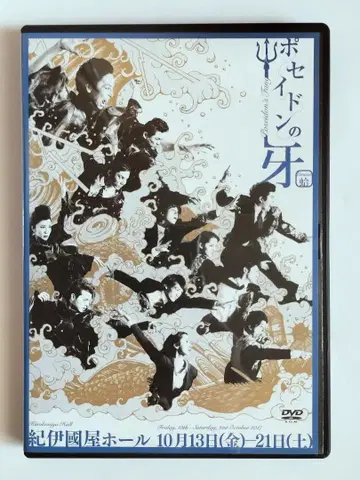 ポセイドンの牙
Poseidon's Fang
蛤
Kinokuniya Hall
Friday, 13th - Saturday, 21st October 2017
紀伊國屋ホール 10月13日(金)-21日(土)
DVD